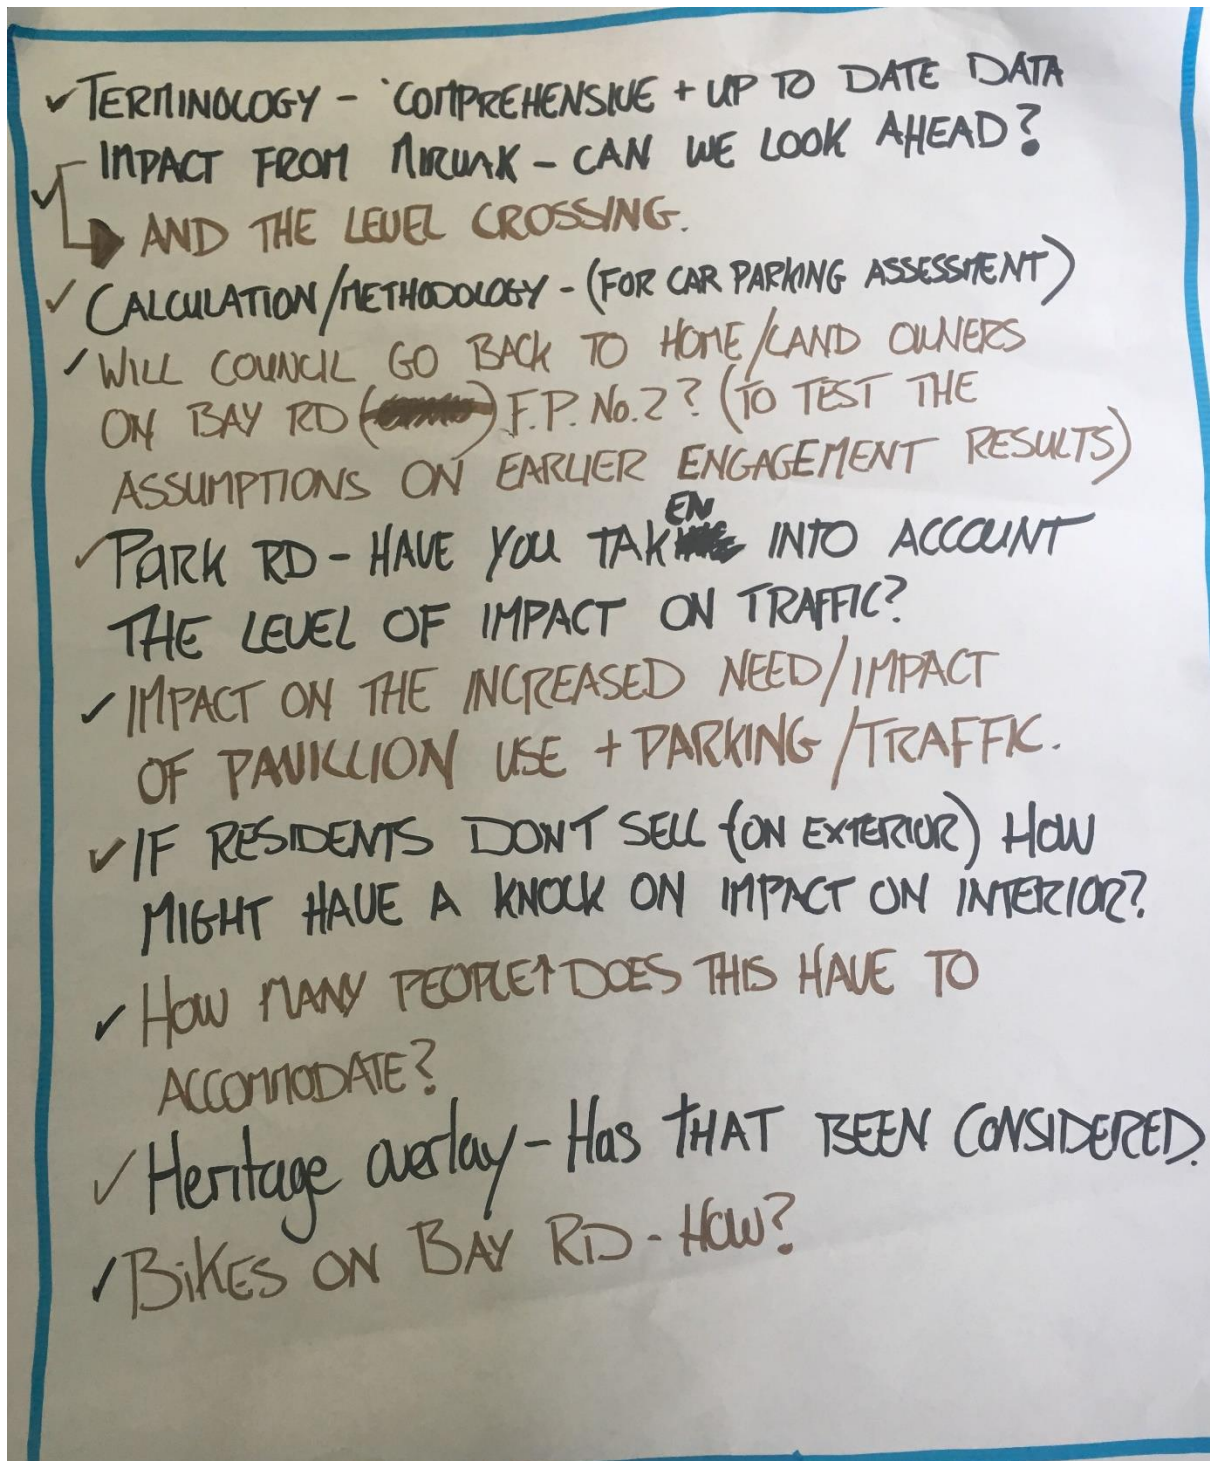 ✓ TERMINOLOGY - COMPREHENSIVE + UP TO DATE DATA
IMPACT FROM MIRVAK - CAN WE LOOK AHEAD?
✓ AND THE LEVEL CROSSING.
✓ CALCULATION/METHODOLOGY - (FOR CAR PARKING ASSESSMENT)
✓ WILL COUNCIL GO BACK TO HOME/LAND OWNERS
ON BAY RD ( ) F.P. No. 2? (TO TEST THE
ASSUMPTIONS ON EARLIER ENGAGEMENT RESULTS)
✓ PARK RD - HAVE YOU TAKEN INTO ACCOUNT
THE LEVEL OF IMPACT ON TRAFFIC?
✓ IMPACT ON THE INCREASED NEED/IMPACT
OF PAVILLION USE + PARKING/TRAFFIC.
✓ IF RESIDENTS DON'T SELL (ON EXTERIOR) HOW
MIGHT HAVE A KNOCK ON IMPACT ON INTERIOR?
✓ HOW MANY PEOPLE↑ DOES THIS HAVE TO
ACCOMMODATE?
✓ Heritage overlay - Has THAT BEEN CONSIDERED.
✓ BiKES ON BAY RD - HOW?